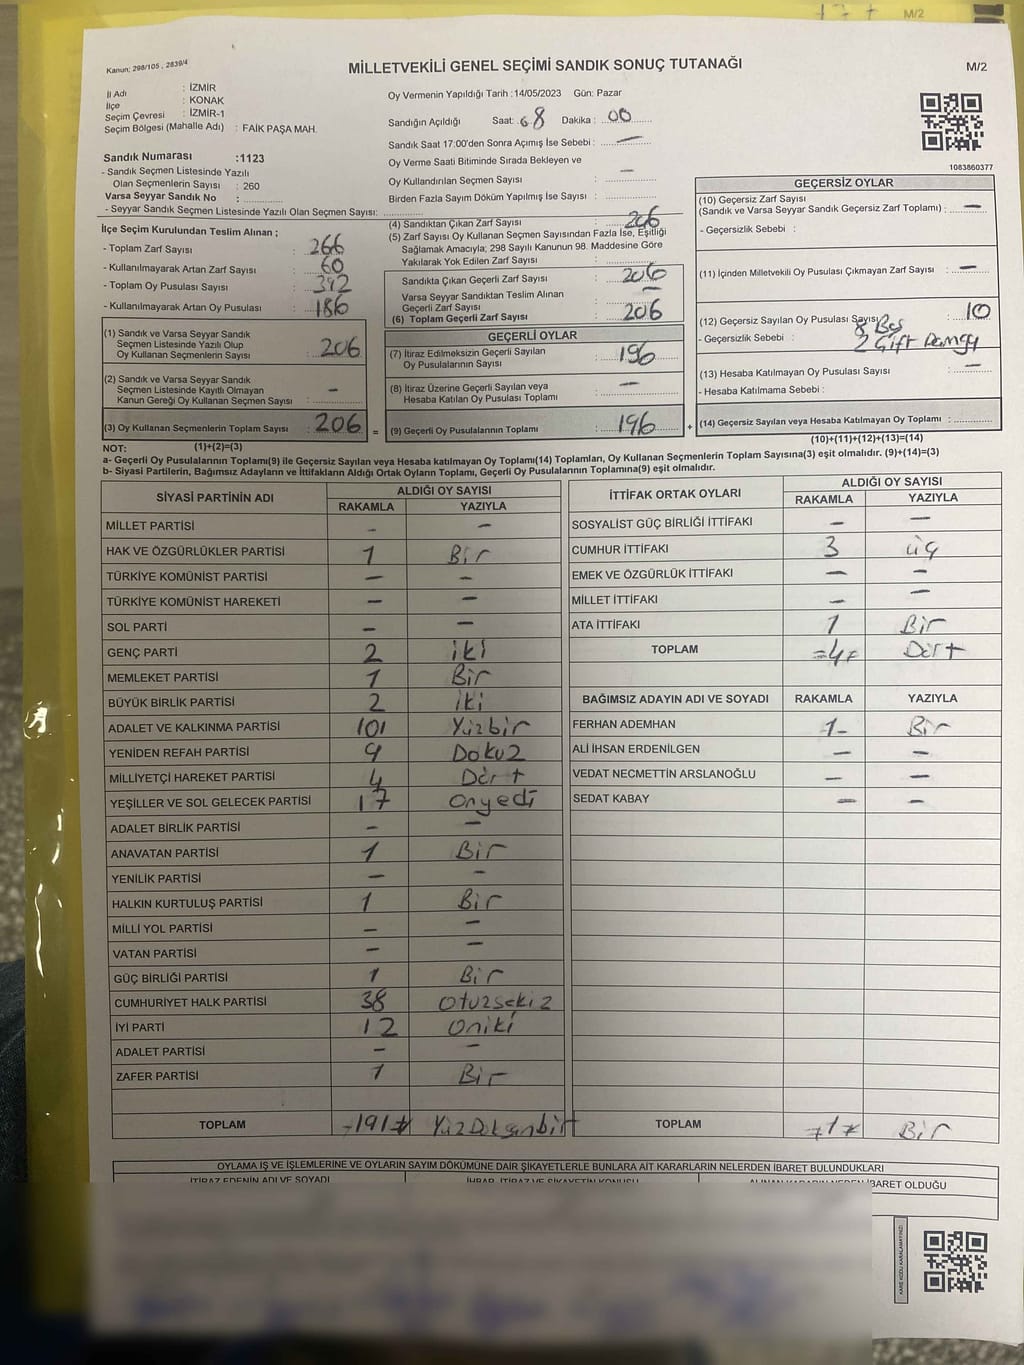 M/2
Kanun; 298/105 , 2839/4
MİLLETVEKİLİ GENEL SEÇİMİ SANDIK SONUÇ TUTANAĞI
M/2
İl Adı : İZMİR
İlçe : KONAK
Seçim Çevresi : İZMİR-1
Seçim Bölgesi (Mahalle Adı) : FAİK PAŞA MAH.
Sandık Numarası :1123
- Sandık Seçmen Listesinde Yazılı
Olan Seçmenlerin Sayısı : 260
Varsa Seyyar Sandık No :
- Seyyar Sandık Seçmen Listesinde Yazılı Olan Seçmen Sayısı:
Oy Vermenin Yapıldığı Tarih :14/05/2023 Gün: Pazar
Sandığın Açıldığı Saat: 08 Dakika : 00
Sandık Saat 17:00'den Sonra Açımış İse Sebebi : —
Oy Verme Saati Bitiminde Sırada Bekleyen ve
Oy Kullandırılan Seçmen Sayısı : —
Birden Fazla Sayım Döküm Yapılmış İse Sayısı :
1083860377
İlçe Seçim Kurulundan Teslim Alınan ;
- Toplam Zarf Sayısı : 266
- Kullanılmayarak Artan Zarf Sayısı : 60
- Toplam Oy Pusulası Sayısı : 392
- Kullanılmayarak Artan Oy Pusulası : 186
(1) Sandık ve Varsa Seyyar Sandık
Seçmen Listesinde Yazılı Olup
Oy Kullanan Seçmenlerin Sayısı : 206
(2) Sandık ve Varsa Seyyar Sandık
Seçmen Listesinde Kayıtlı Olmayan
Kanun Gereği Oy Kullanan Seçmen Sayısı : –
(3) Oy Kullanan Seçmenlerin Toplam Sayısı : 206
(4) Sandıktan Çıkan Zarf Sayısı : 206
(5) Zarf Sayısı Oy Kullanan Seçmen Sayısından Fazla İse, Eşitliği
Sağlamak Amacıyla; 298 Sayılı Kanunun 98. Maddesine Göre
Yakılarak Yok Edilen Zarf Sayısı :
Sandıkta Çıkan Geçerli Zarf Sayısı : 206
Varsa Seyyar Sandıktan Teslim Alınan
Geçerli Zarf Sayısı : —
(6) Toplam Geçerli Zarf Sayısı : 206
GEÇERLİ OYLAR
(7) İtiraz Edilmeksizin Geçerli Sayılan
Oy Pusulalarının Sayısı : 196
(8) İtiraz Üzerine Geçerli Sayılan veya
Hesaba Katılan Oy Pusulası Toplamı : —
= (9) Geçerli Oy Pusulalarının Toplamı : 196 +
GEÇERSİZ OYLAR
(10) Geçersiz Zarf Sayısı
(Sandık ve Varsa Seyyar Sandık Geçersiz Zarf Toplamı) : —
- Geçersizlik Sebebi :
(11) İçinden Milletvekili Oy Pusulası Çıkmayan Zarf Sayısı : —
(12) Geçersiz Sayılan Oy Pusulası Sayısı : 10
- Geçersizlik Sebebi : 8 Boş
2 Çift Damga
(13) Hesaba Katılmayan Oy Pusulası Sayısı : —
- Hesaba Katılmama Sebebi :
(14) Geçersiz Sayılan veya Hesaba Katılmayan Oy Toplamı :
NOT: (1)+(2)=(3)
(10)+(11)+(12)+(13)=(14)
a- Geçerli Oy Pusulasının Toplamı(9) ile Geçersiz Sayılan veya Hesaba katılmayan Oy Toplamı(14) Toplamları, Oy Kullanan Seçmenlerin Toplam Sayısına(3) eşit olmalıdır. (9)+(14)=(3)
b- Siyasi Partilerin, Bağımsız Adayların ve İttifakların Aldığı Ortak Oyların Toplamı, Geçerli Oy Pusulalarının Toplamına(9) eşit olmalıdır.
SİYASİ PARTİNİN ADI ALDIĞI OY SAYISI
RAKAMLA YAZIYLA
MİLLET PARTİSİ – –
HAK VE ÖZGÜRLÜKLER PARTİSİ 1 Bir
TÜRKİYE KOMÜNİST PARTİSİ – –
TÜRKİYE KOMÜNİST HAREKETİ – –
SOL PARTİ – –
GENÇ PARTİ 2 iki
MEMLEKET PARTİSİ 1 Bir
BÜYÜK BİRLİK PARTİSİ 2 iki
ADALET VE KALKINMA PARTİSİ 101 Yüzbir
YENİDEN REFAH PARTİSİ 9 Dokuz
MİLLİYETÇİ HAREKET PARTİSİ 4 Dört
YEŞİLLER VE SOL GELECEK PARTİSİ 17 Onyedi
ADALET BİRLİK PARTİSİ – –
ANAVATAN PARTİSİ 1 Bir
YENİLİK PARTİSİ – –
HALKIN KURTULUŞ PARTİSİ 1 Bir
MİLLİ YOL PARTİSİ – –
VATAN PARTİSİ – –
GÜÇ BİRLİĞİ PARTİSİ 1 Bir
CUMHURİYET HALK PARTİSİ 38 Otuzsekiz
İYİ PARTİ 12 Oniki
ADALET PARTİSİ – –
ZAFER PARTİSİ 1 Bir
TOPLAM 191 YüzDoksanbir
İTTİFAK ORTAK OYLARI ALDIĞI OY SAYISI
RAKAMLA YAZIYLA
SOSYALİST GÜÇ BİRLİĞİ İTTİFAKI – –
CUMHUR İTTİFAKI 3 üç
EMEK VE ÖZGÜRLÜK İTTİFAKI – –
MİLLET İTTİFAKI – –
ATA İTTİFAKI 1 Bir
TOPLAM =4= Dört
BAĞIMSIZ ADAYIN ADI VE SOYADI RAKAMLA YAZIYLA
FERHAN ADEMHAN 1- Bir
ALİ İHSAN ERDENİLGEN – –
VEDAT NECMETTİN ARSLANOĞLU – –
SEDAT KABAY – –
TOPLAM =1= Bir
OYLAMA İŞ VE İŞLEMLERİNE VE OYLARIN SAYIM DÖKÜMÜNE DAİR ŞİKAYETLERLE BUNLARA AİT KARARLARIN NELERDEN İBARET BULUNDUKLARI
İTİRAZ EDENİN ADI VE SOYADI İHBAR, İTİRAZ VE ŞİKAYETİN KONUSU ALINAN KARARIN NEDEN İBARET OLDUĞU
KARE KODU KARALAMAYINIZ!